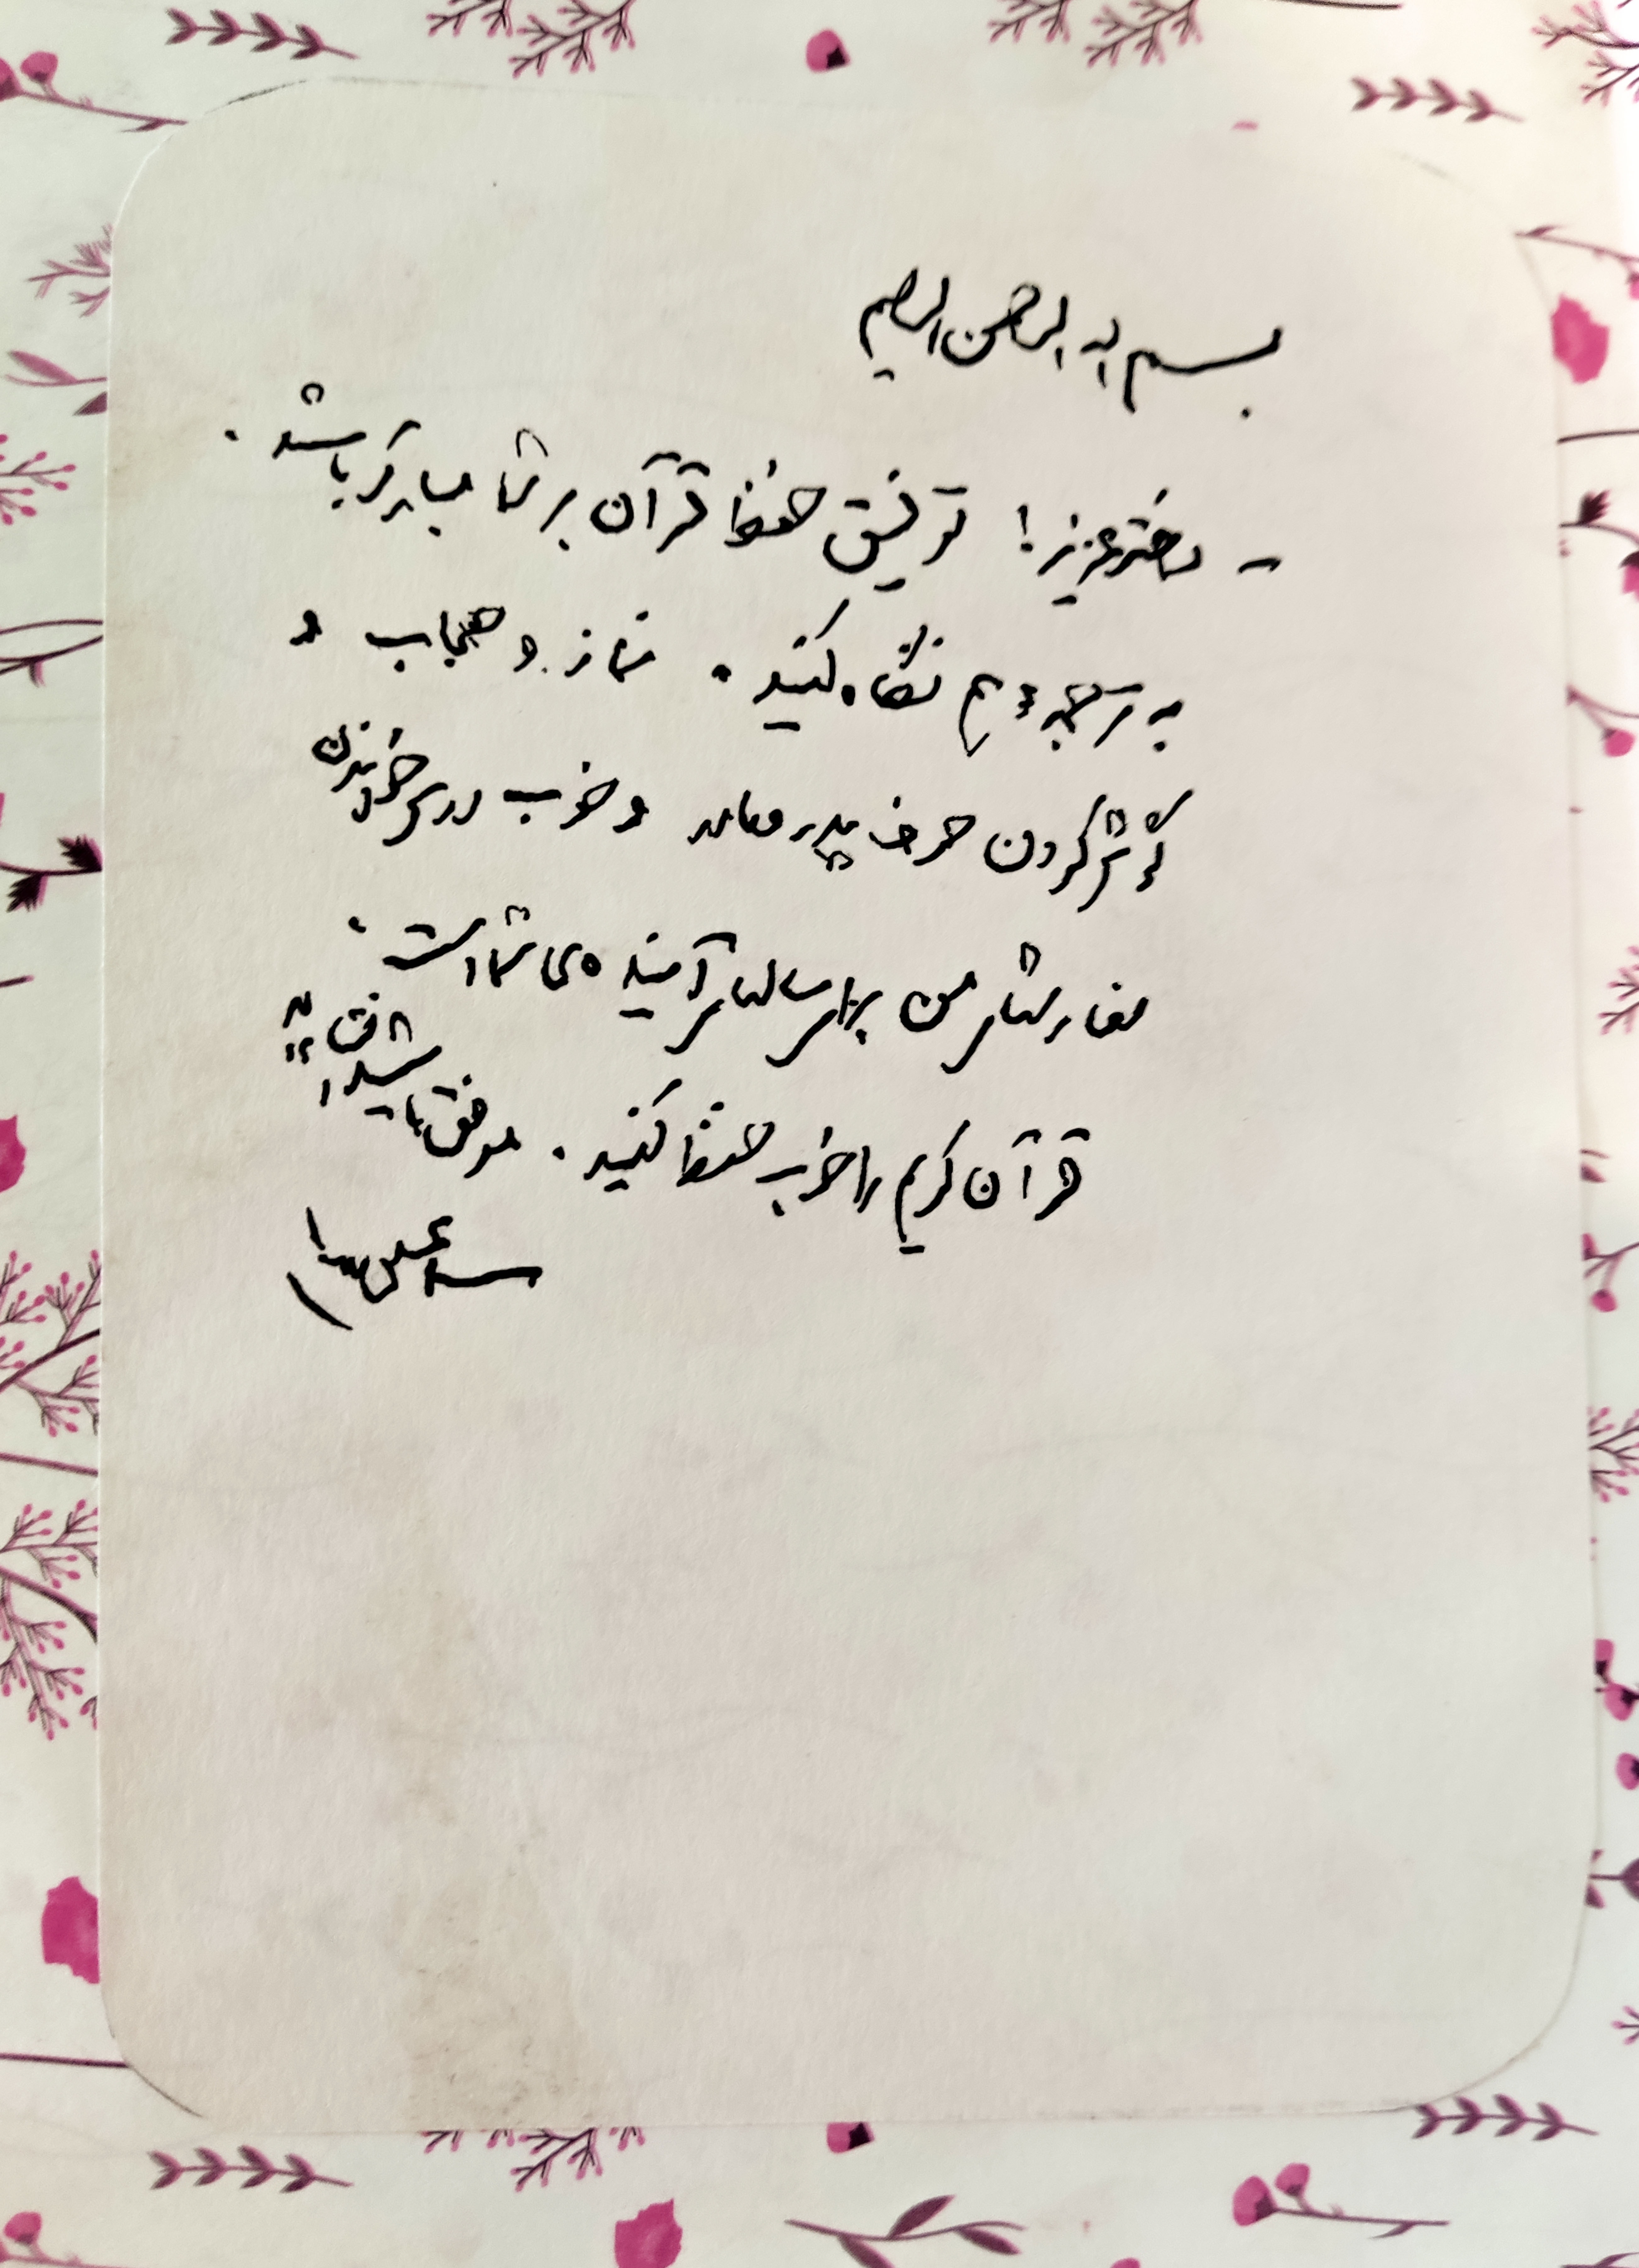 بسم الله الرحمن الرحیم
- دختر عزیز! توفیق حفظ قرآن بر شما مبارک باشد.
به ترجمه هم نگاه کنید. نماز و حجاب و
گوش کردن حرف پدر و مادر و خوب درس خواندن
سفارش من برای سالهای آینده‌ی شما است.
قرآن کریم را خوب حفظ کنید. موفق باشید انشاءالله